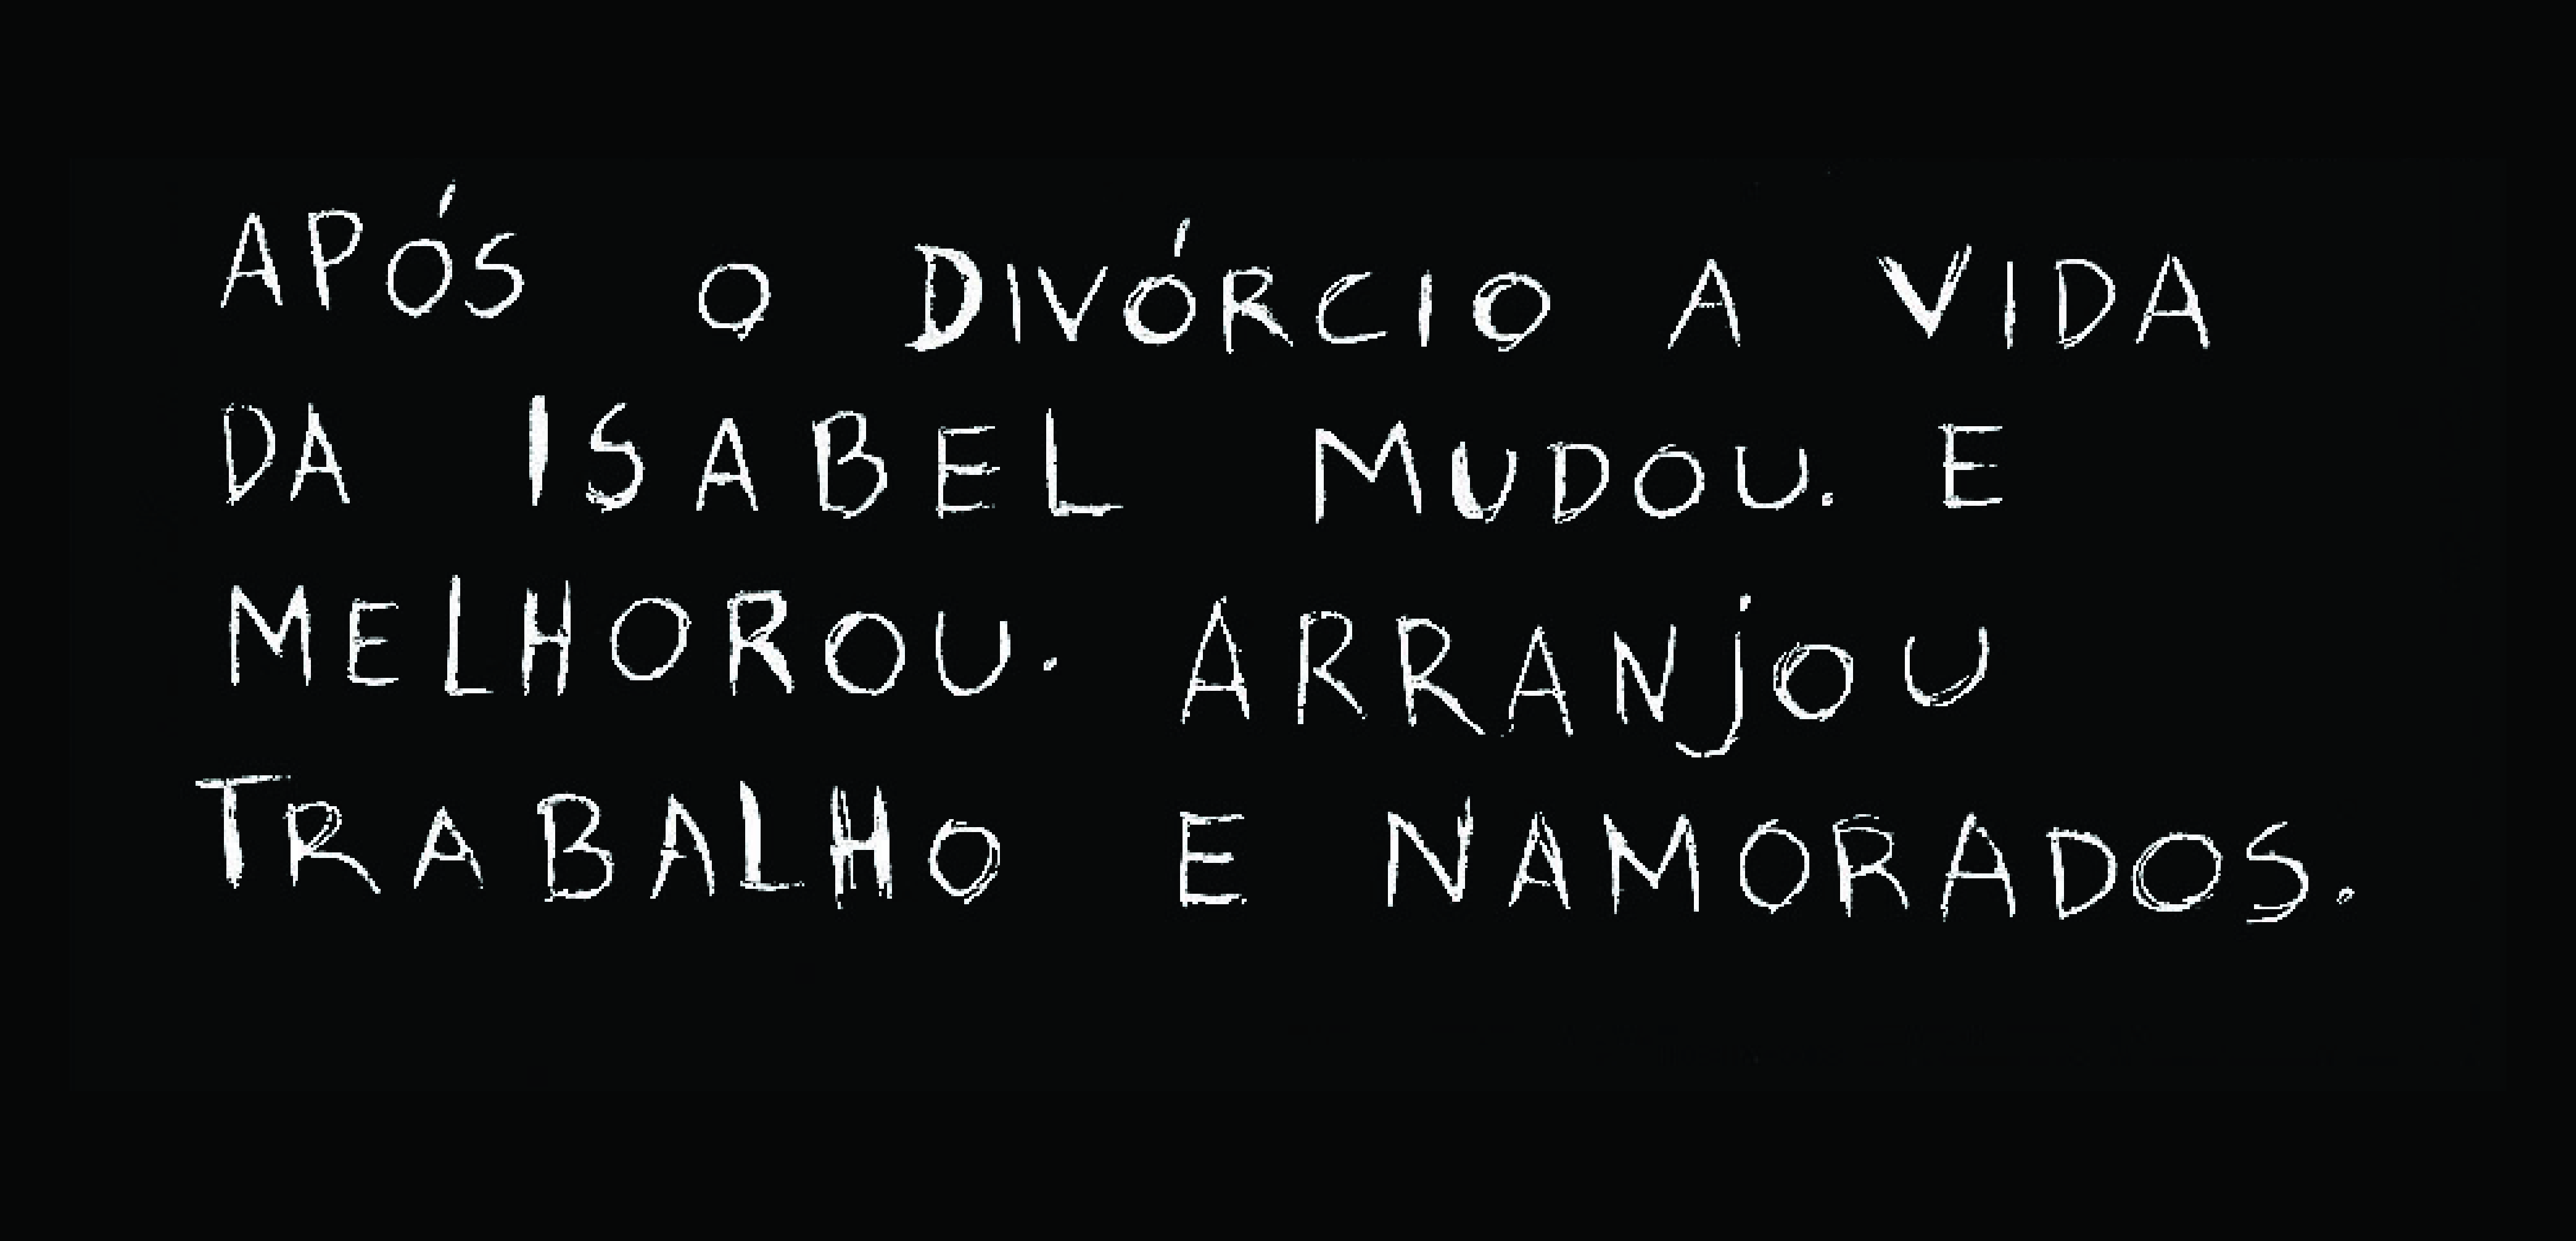 APÓS O DIVÓRCIO A VIDA
DA ISABEL MUDOU. E
MELHOROU. ARRANjOU
TRABALHO E NAMORADOS.